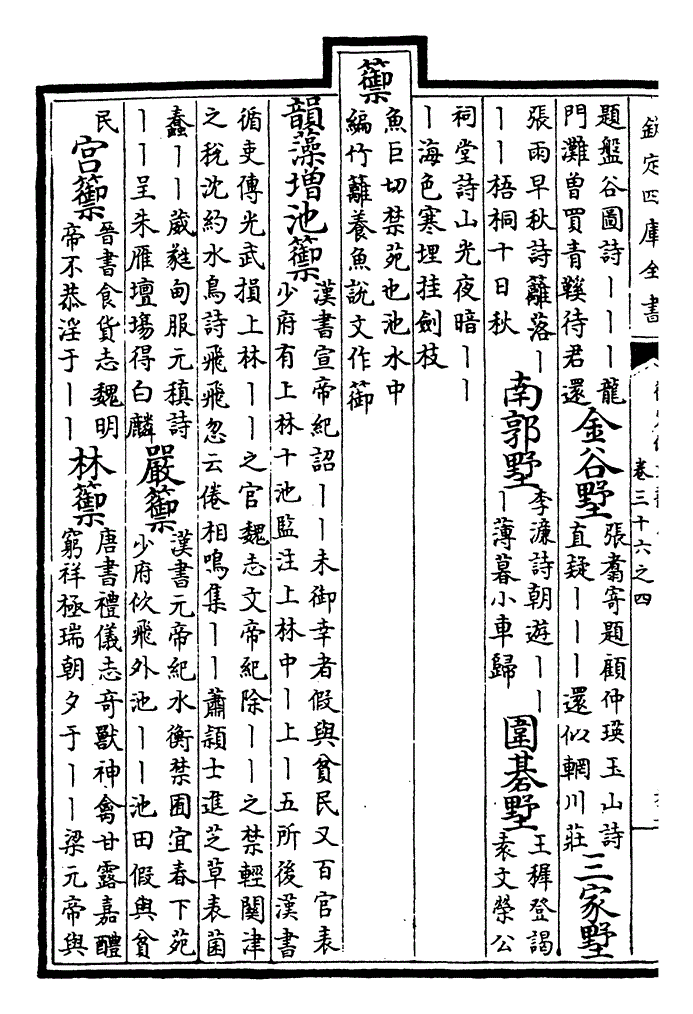 欽定四庫全書
卷三十六之四
題盤谷圖詩｜｜｜龍
門灘曾買青鞵待君還
金谷墅
張翥寄題顧仲瑛玉山詩
直疑｜｜｜還似輞川莊
三家墅
張雨早秋詩籬落｜
｜｜梧桐十日秋
南郭墅
李濂詩朝遊｜｜
｜薄暮小車歸
圍碁墅
王穉登謁
袁文榮公
祠堂詩山光夜暗｜｜
｜海色寒埋挂劍枝
籞
魚巨切禁苑也池水中
編竹籬養魚說文作䉷
韻藻增池籞
漢書宣帝紀詔｜｜未御幸者假與貧民又百官表
少府有上林十池監注上林中｜上｜五所後漢書
循吏傳光武損上林｜｜之官魏志文帝紀除｜｜之禁輕關津
之稅沈約水鳥詩飛飛忽云倦相鳴集｜｜蕭穎士進芝草表菌
蠢｜｜葳蕤甸服元稹詩
｜｜呈朱雁壇場得白麟
嚴籞
漢書元帝紀水衡禁囿宜春下苑
少府佽飛外池｜｜池田假與貧
民
宮籞
晉書食貨志魏明
帝不恭淫于｜｜
林籞
唐書禮儀志奇獸神禽甘露嘉醴
窮祥極瑞朝夕于｜｜梁元帝與